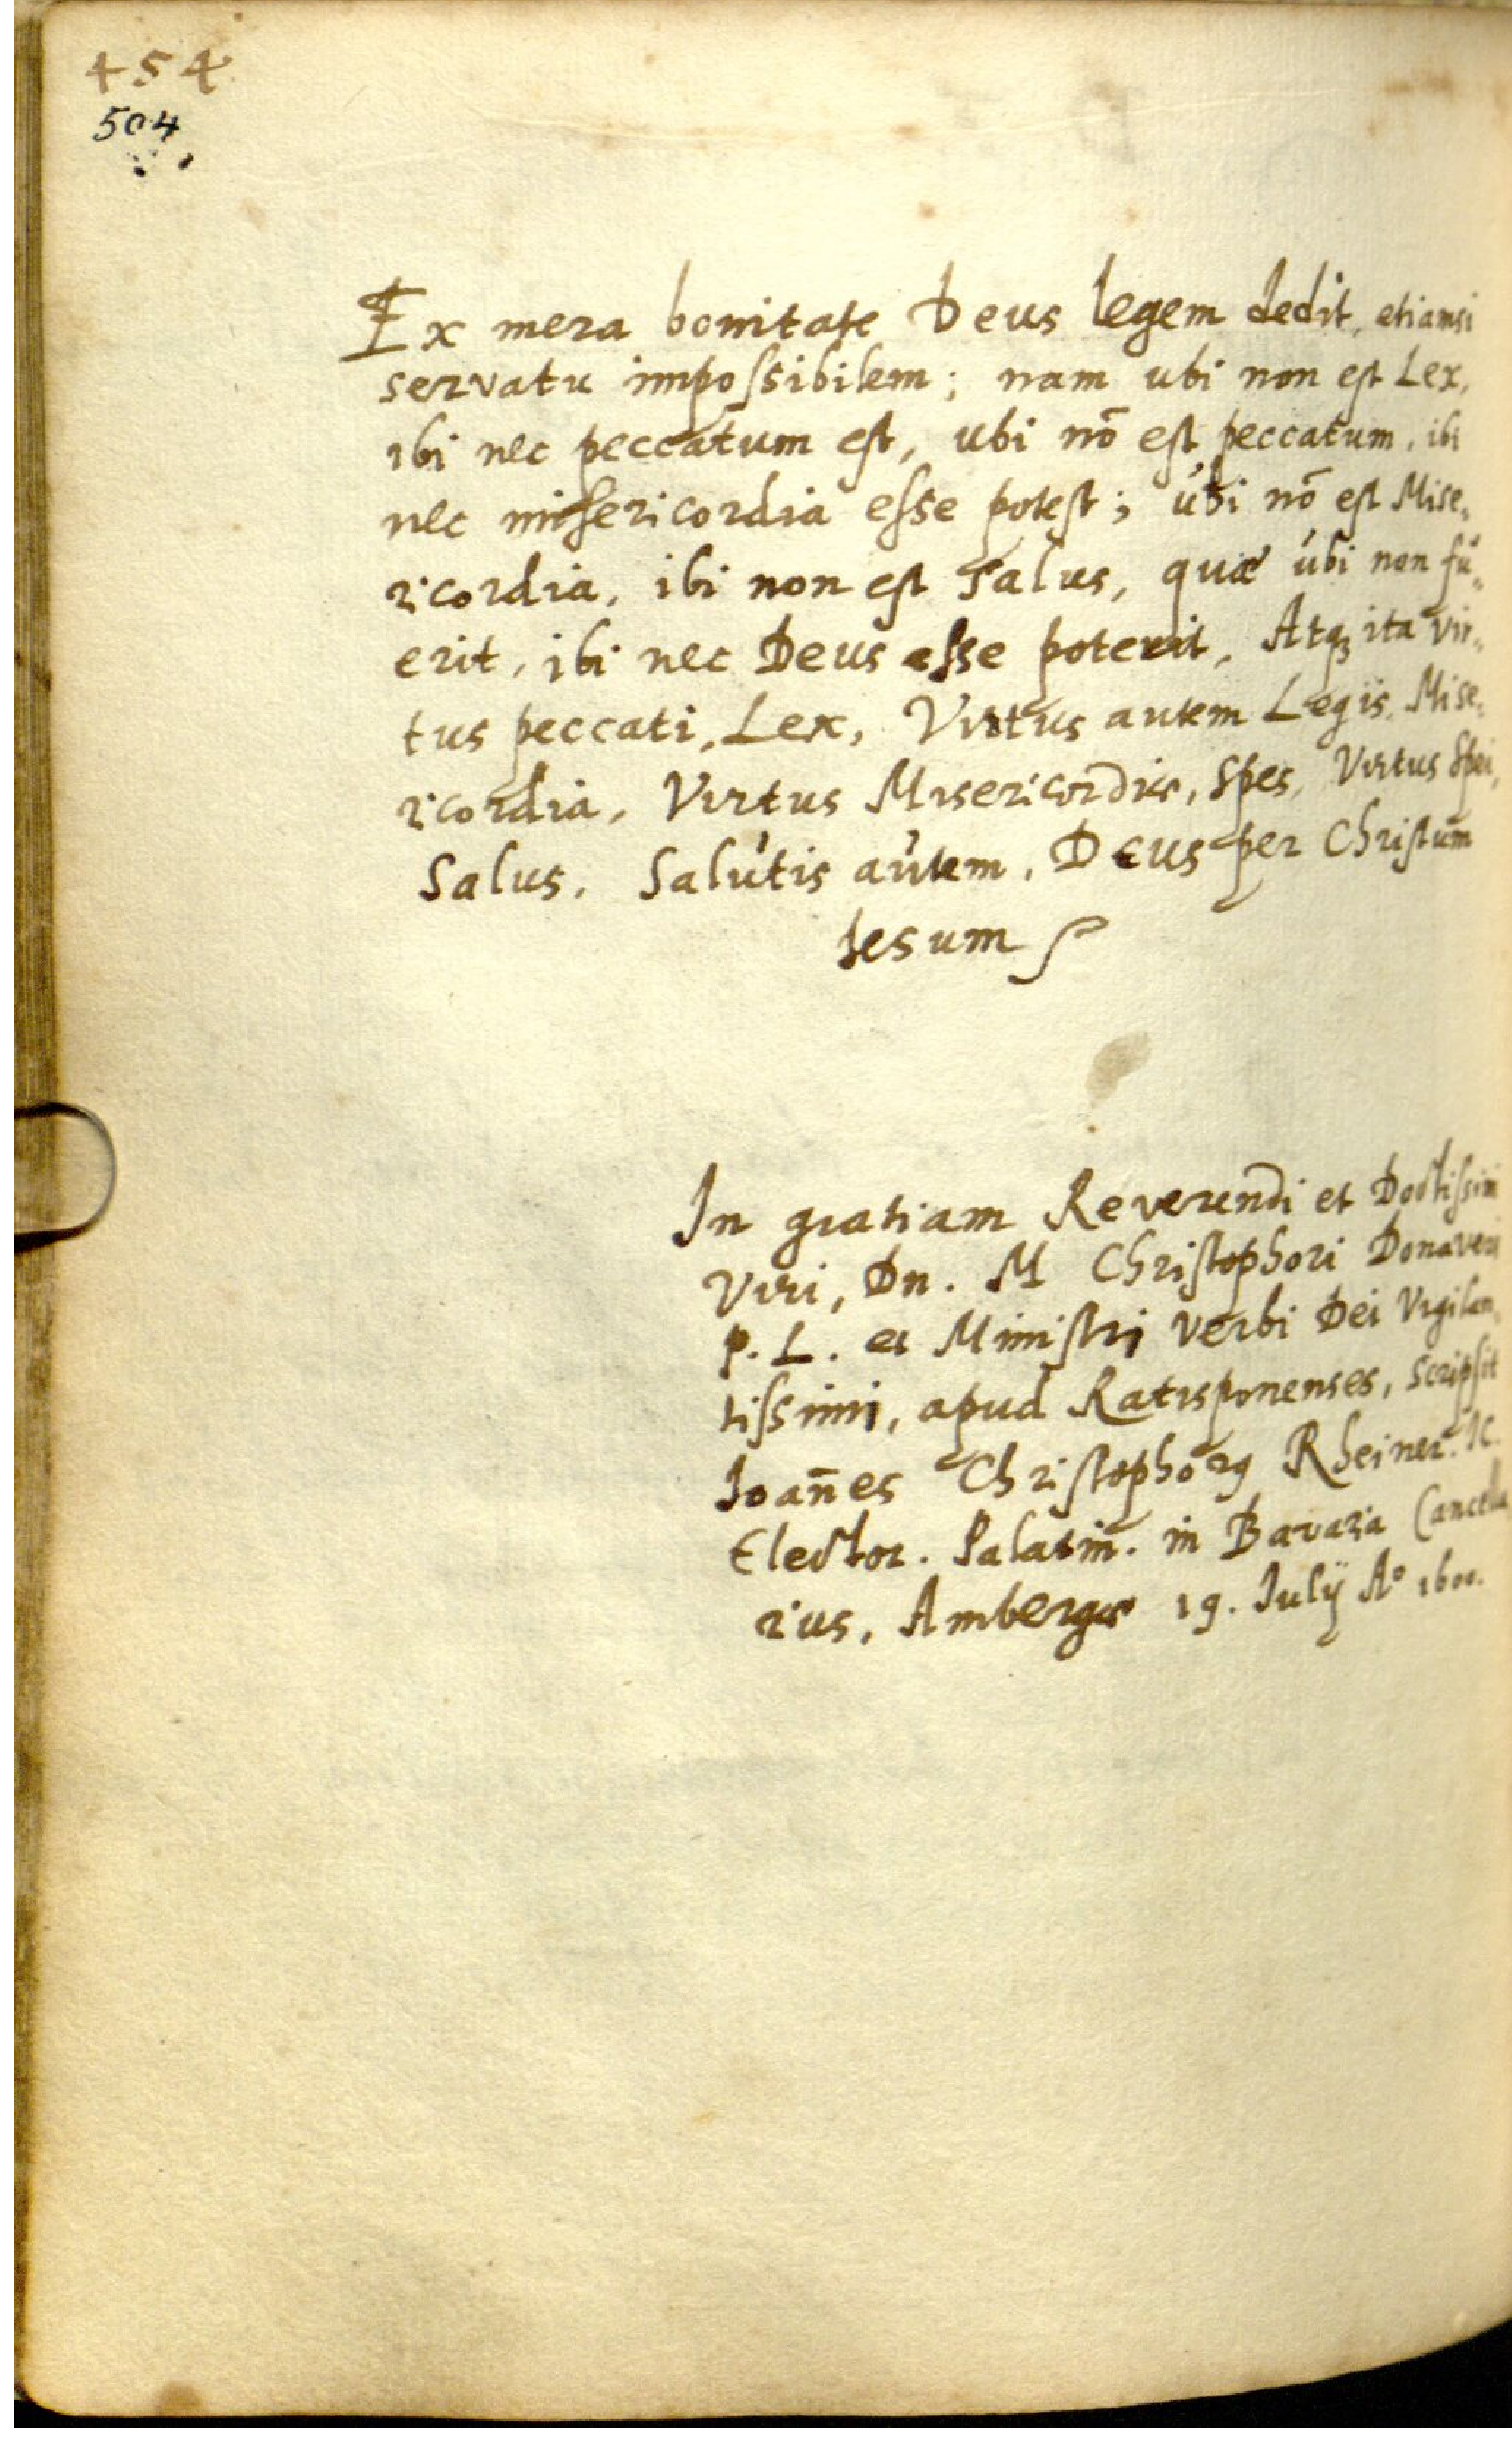 454
504
Ex mera bonitate Deus legem dedit, etiamsi
servatu impoſsibilem; nam ubi non eſt Lex,
ibi nec peccatum eſt, ubi nō eſt peccatum, ibi
nec miſericordia eſse poteſt; úbi nō eſt Mise,
ricordia, ibi non eſt Salus, quæ úbi non fú,
erit, ibi nec Deus eſse poterit, Atqꝫ ita vir,
tus peccati, Lex, Virtus autem Legis, Mise,
ricordia, Virtus Misericordiæ, Spes, Virtus Spei,
Salus, Salútis aútem, Deus per Chriſtum
Iesum
In gratiam Reverendi et Doctiſsimi
Viri, Dn. M Chriſtophori Donaveri
P. L. et Miniſtri Verbi Dei Vigilan,
tiſsimi, apud Ratisponenses, scripſit
Ioan̄es Chriſtophorꝰ Rheiner. IC.
Elector. Palatin. in Bavaria Cancella
rius, Ambergæ 19. Julÿ Aº 1600.